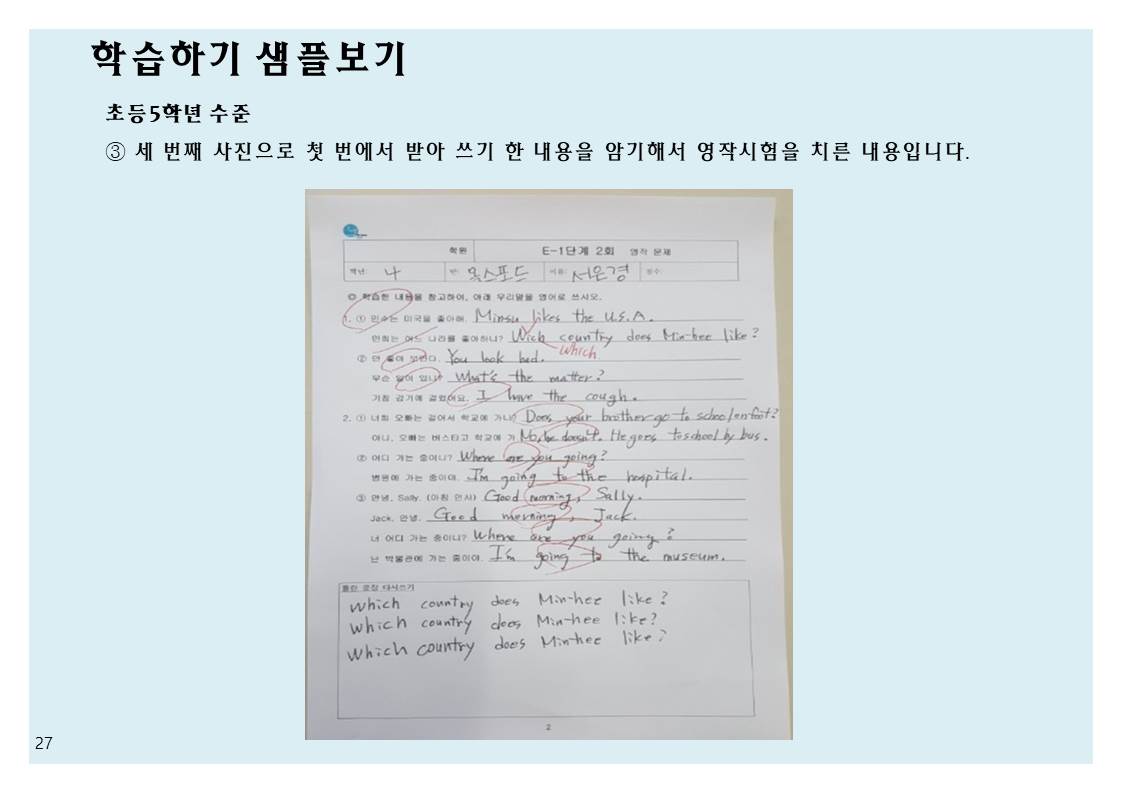 학습하기 샘플보기
초등5학년 수준
③ 세 번째 사진으로 첫 번에서 받아 쓰기 한 내용을 암기해서 영작시험을 치른 내용입니다.
학원 E-1단계 2회 영작 문제
학년: 나 반: 옥스포드 이름: 서은경 점수:
◎ 학습한 내용을 참고하여, 아래 우리말을 영어로 쓰시오.
1. ① 민수는 미국을 좋아해. Minsu likes the U.S.A.
민희는 어느 나라를 좋아하니? Wich country does Min-hee like?
Which
② 안 좋아 보인다. You look bad.
무슨 일이 있니? What's the matter?
기침 감기에 걸렸어요. I have the cough.
2. ① 너희 오빠는 걸어서 학교에 가니? Does your brother go to school on foot?
아니, 오빠는 버스타고 학교에 가 No, he doesn't. He goes to school by bus.
② 어디 가는 중이니? Where are you going?
병원에 가는 중이야. I'm going to the hospital.
③ 안녕, Sally. (아침 인사) Good morning, Sally.
Jack, 안녕. Good morning, Jack.
너 어디 가는 중이니? Where are you going?
난 박물관에 가는 중이야. I'm going to the museum.
틀린 문장 다시쓰기
Which country does Min-hee like?
Which country does Min-hee like?
Which country does Min-hee like?
2
27